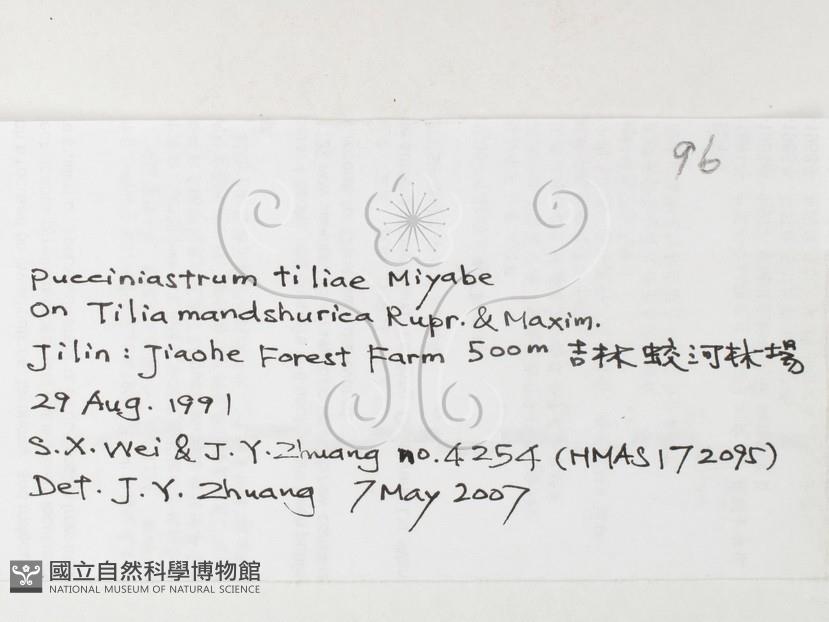 96
Pucciniastrum tiliae Miyabe
on Tilia mandshurica Rupr. & Maxim.
Jilin : Jiaohe Forest Farm 500m 吉林蛟河林場
29 Aug. 1991
S.X. Wei & J.Y. Zhuang no. 4254 (HMAS172095)
Det. J.Y. Zhuang 7 May 2007
國立自然科學博物館
NATIONAL MUSEUM OF NATURAL SCIENCE